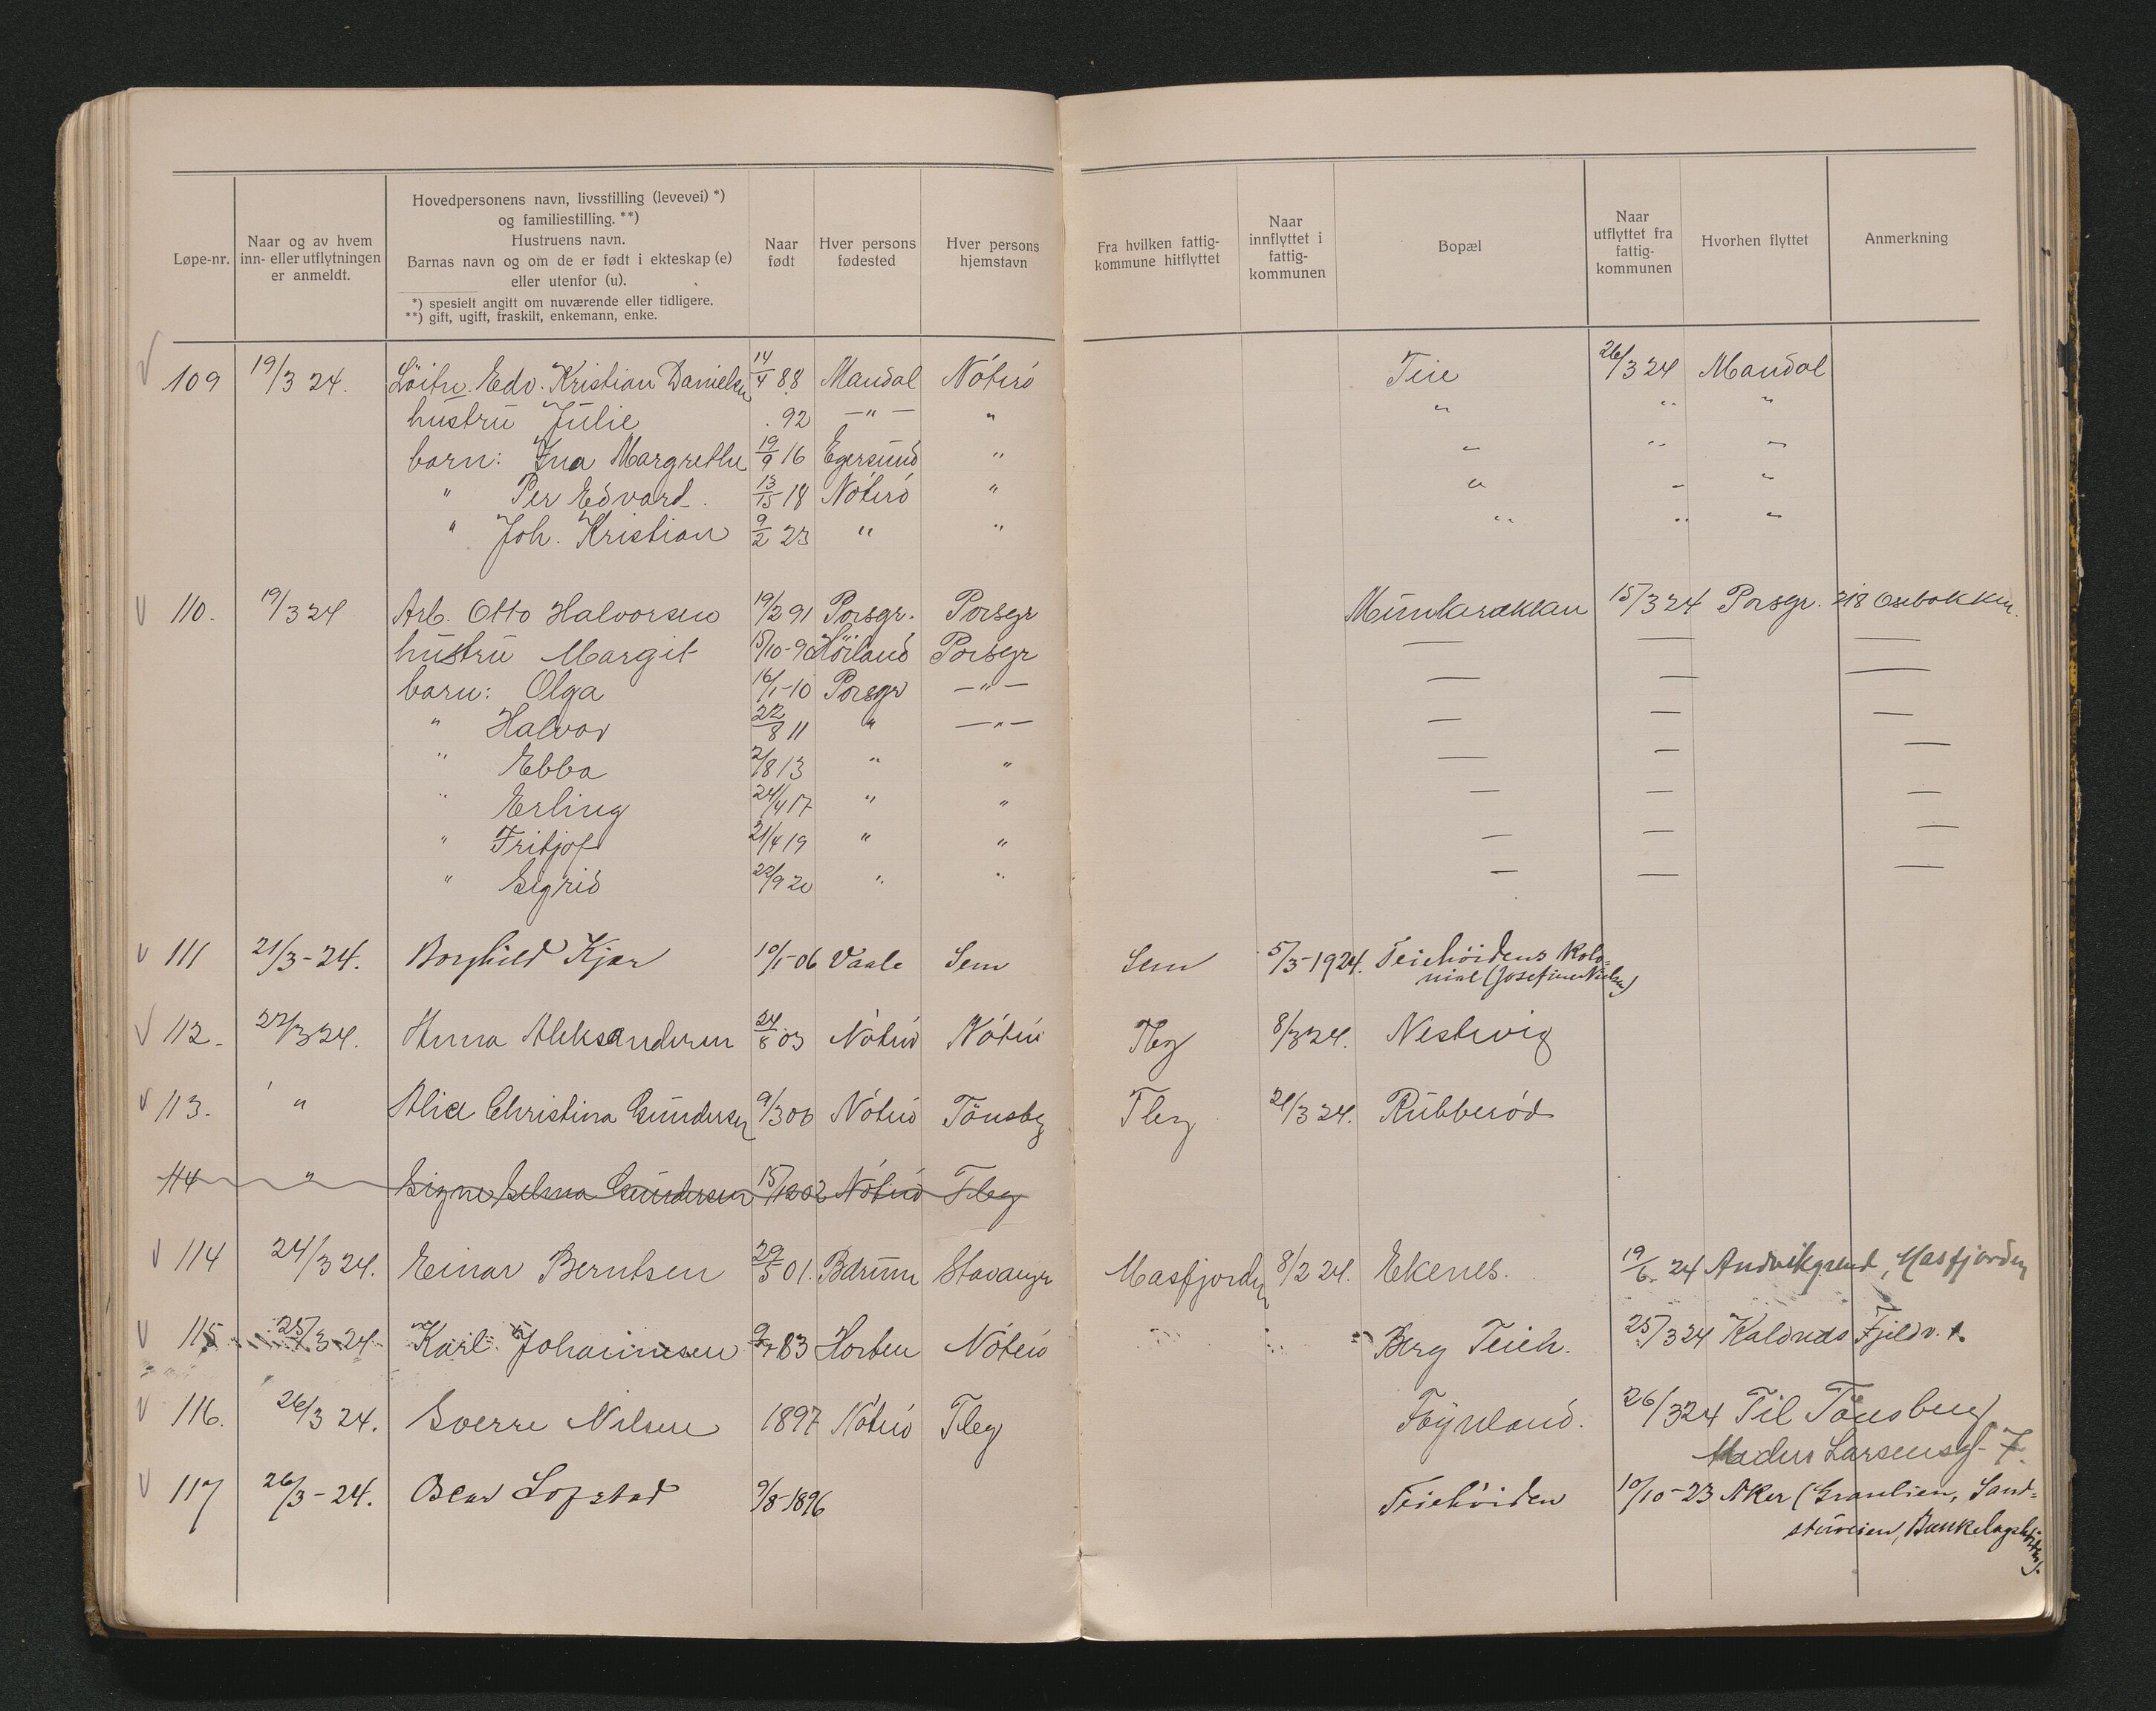 Løpe-nr.
Naar og av hvem
inn- eller utflytningen
er anmeldt.
Hovedpersonens navn, livsstilling (levevei) *)
og familiestilling. **)
Hustruens navn.
Barnas navn og om de er født i ekteskap (e)
eller utenfor (u).
*) spesielt angitt om nuværende eller tidligere.
**) gift, ugift, fraskilt, enkemann, enke.
Naar
født
Hver persons
fødested
Hver persons
hjemstavn
Fra hvilken fattig-
kommune hitflyttet
Naar
innflyttet i
fattig-
kommunen
Bopæl
Naar
utflyttet fra
fattig-
kommunen
Hvorhen flyttet
Anmerkning
109 19/3 24. Löitn. Edv. Kristian Danielsen 14/4 88 Mandal Nóteró Teie 26/3 24 Mandal
hustru Julie 92 — " — " " " "
barn: Ina Margrethe 19/9 16 Egersund " " " "
" Per Edvard 18 Nóteró " " " "
" Joh. Kristian 9/2 23 " " " " "
110. 19/3 24 Arb. Otto Halvorsen 19/2 91 Porsgr. Porsgr Munkerekkan 15/3 24 Porsgr. 218 Osebakken.
hustru Margit 15/10-90 Porsgr — — —
barn: Olga 16/1-10 Porsgr — " — — — —
" Halvor 22/8 11 " — " — — — —
" Ebba 2/8 13 " " — — —
" Erling 24/4 17 " " — — —
" Fritjof 21/4 19 " " — — —
" Sigrid 22/9 20 " " — — —
111 21/3-24. Borghild Kjær 10/1-06 Vaale Sem Sem 5/3-1924. Teiehöidens Kolo=
nial (Josefine Nielsen)
112. 22/3 24. Anna Aleksandersen 24/8 03 Nóteró Nóteró Tbg 8/3 24. Nestevig
113. " Alice Christina Gundersen 9/3 06 Nóteró Tönsbg Tbg 21/3 24. Rubberód
114 " Signe Selma Gundersen 15/12 02 Nóteró Tbg
114 24/3 24. Einar Berntsen 29/5 01. Bærum Stavanger Masfjorden 8/2 24. Ekenes. 19/6. 24 Andvikgrend, Masfjorden
115 25/3-24 Karl Johannesen 83 Horten Nóteró Berg Teieh. 25/3 24 Kaldnes Fjeldv. 1.
116. 26/3 24. Sverre Nilsen 1897 Nóteró Tbg Föynland. 26/3 24 Til Tönsberg
Larsensgt. 7.
117 26/3-24. Oscar Lofstad 9/8-1896 Teiehöiden 10/10-23 Aker (Granlien, Sand=
stuveien, Bækkelagshöiden).